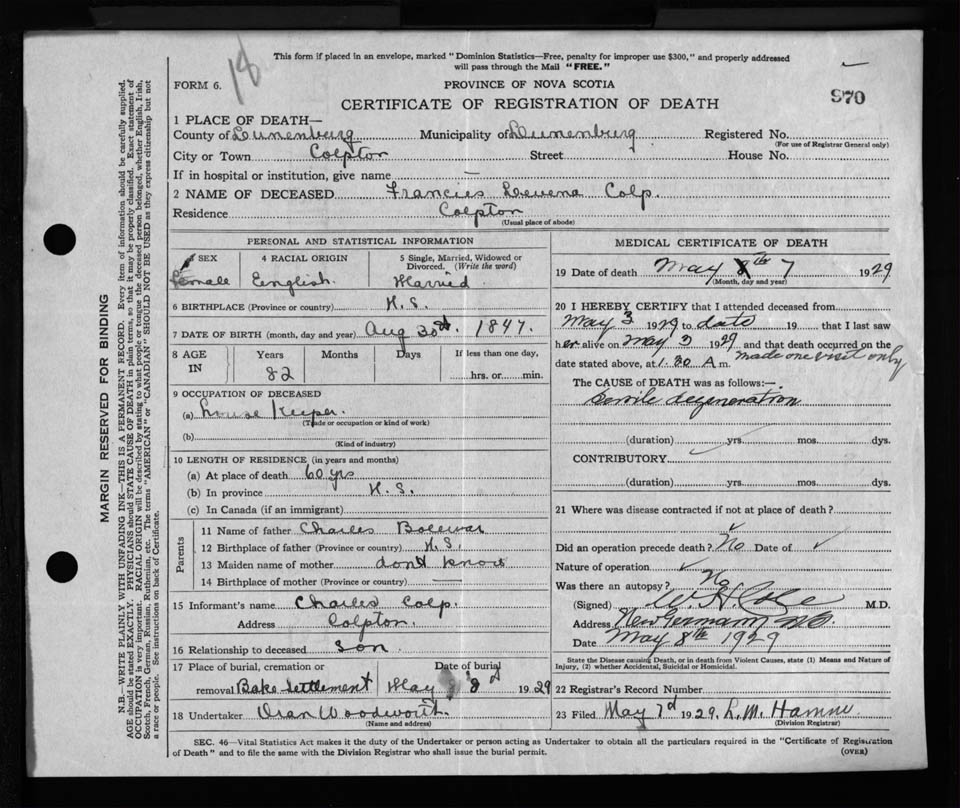 18
This form if placed in an envelope, marked "Dominion Statistics—Free, penalty for improper use $300," and properly addressed
will pass through the Mail "FREE."
FORM 6.
PROVINCE OF NOVA SCOTIA
970
CERTIFICATE OF REGISTRATION OF DEATH
MARGIN RESERVED FOR BINDING
N.B.—WRITE PLAINLY WITH UNFADING INK—THIS IS A PERMANENT RECORD. Every item of information should be carefully supplied.
AGE should be stated EXACTLY. PHYSICIANS should STATE CAUSE OF DEATH in plain terms, so that it may be properly classified. Exact statement of
OCCUPATION is very important. RACIAL ORIGIN will be described by stating to what people or tongue the deceased person belonged, whether English, Irish,
Scotch, French, German, Russian, Ruthenian, etc. The terms "AMERICAN" or "CANADIAN" SHOULD NOT BE USED as they express citizenship but not
a race or people. See instructions on back of Certificate.
1 PLACE OF DEATH—
County of Lunenburg Municipality of Lunenburg Registered No.
(For use of Registrar General only)
City or Town Colpton Street House No.
If in hospital or institution, give name —
2 NAME OF DECEASED Francies Levena Colp.
Residence Colpton
(Usual place of abode)
PERSONAL AND STATISTICAL INFORMATION
3 SEX 4 RACIAL ORIGIN 5 Single, Married, Widowed or
Divorced. (Write the word)
Female English. Married
6 BIRTHPLACE (Province or country) N.S.
7 DATE OF BIRTH (month, day and year) Aug 30th. 1847.
8 AGE IN Years Months Days If less than one day,
82 hrs. or min.
9 OCCUPATION OF DECEASED
(a) house Keeper.
(Trade or occupation or kind of work)
(b)
(Kind of industry)
10 LENGTH OF RESIDENCE (in years and months)
(a) At place of death 60 yrs
(b) In province N.S.
(c) In Canada (if an immigrant)
Parents
11 Name of father Charles
12 Birthplace of father (Province or country) N.S.
13 Maiden name of mother dont know
14 Birthplace of mother (Province or country) —
15 Informant's name Charles Colp.
Address Colpton.
16 Relationship to deceased Son
17 Place of burial, cremation or Date of burial
removal Bake Settlement May 8 1929
18 Undertaker Oran
(Name and address)
MEDICAL CERTIFICATE OF DEATH
19 Date of death May 8th 7 1929
(Month, day and year)
20 I HEREBY CERTIFY that I attended deceased from
May 3 1929 to date 19 that I last saw
her alive on May 3 1929 and that death occurred on the
date stated above, at 1.30 A m. made one visit only
The CAUSE of DEATH was as follows:—
Senile degeneration
(duration) yrs. mos. dys.
CONTRIBUTORY
(duration) yrs. mos. dys.
21 Where was disease contracted if not at place of death?
Did an operation precede death? No Date of
Nature of operation
Was there an autopsy? No
(Signed) M.D.
Address New Germany N.S.
Date May 8th 1929
State the Disease causing Death, or in death from Violent Causes, state (1) Means and Nature of
Injury, (2) whether Accidental, Suicidal or Homicidal.
22 Registrar's Record Number
23 Filed May 7d 1929, L.M.
(Division Registrar)
SEC. 46—Vital Statistics Act makes it the duty of the Undertaker or person acting as Undertaker to obtain all the particulars required in the "Certificate of Registration
of Death" and to file the same with the Division Registrar who shall issue the burial permit.
(OVER)